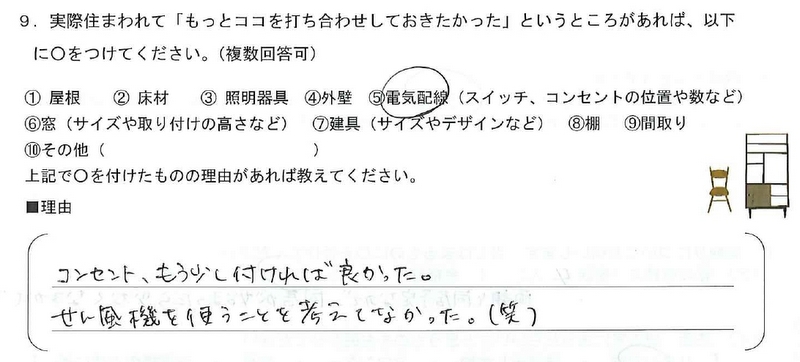 ９．実際住まわれて「もっとココを打ち合わせしておきたかった」というところがあれば、以下
に〇をつけてください。（複数回答可）
① 屋根　② 床材　③ 照明器具　④外壁　⑤電気配線（スイッチ、コンセントの位置や数など）
⑥窓（サイズや取り付けの高さなど）　⑦建具（サイズやデザインなど）　⑧棚　⑨間取り
⑩その他（　　　　　　　　　　　　　　）
上記で〇を付けたものの理由があれば教えてください。
■理由
コンセント、もう少し付ければ良かった。
せん風機を使うことを考えてなかった。(笑)